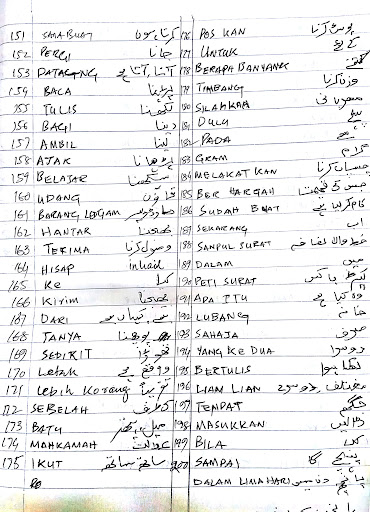 151 SAYA BUAT کرنا ہوں
152 PERGI جانا
153 DATANG آتا، آتا ہے
154 BACA پڑھنا
155 TULIS لکھنا
156 BAGI دینا
157 AMBIL لینا
158 AJAR پڑھانا
159 BELAJAR سیکھنا
160 UDANG
161 BARANG LOGAM
162 HANTAR بھیجنا
163 TERIMA وصول کرنا
164 HISAP inhail
165 KE
166 Kirim بھیجنا
167 DARI
168 TANYA پوچھنا
169 SEDIKIT تھوڑا
170 Letak
171 Lebih Korang
172 SEBELAH
173 BATU میل، پتھر
174 MAHKAMAH عدالت
175 IKUT ساتھ ساتھ
176 POS KAN پوسٹ کرنا
177 UNTUK کے لیے
178 BERAPA BANYAK کتنے
179 TIMBANG وزن کرنا
180 SILAHKAN مہربانی
181 DULU پہلے
182 PADA
183 GRAM گرام
184 MELAKAT KAN چسپاں کرنا
185 BER HARGAH جس کی قیمت
186 SUDAH BUAT
187 SEKARANG اب
188 SAMPUL SURAT خط والا لفافہ
189 DALAM میں
190 PETI SURAT لیٹر باکس
191 APA ITU وہ کیا ہے
192 LUBANG
193 SAHAJA صرف
194 YANG KE DUA دوسرا
195 BERTULIS لکھا ہوا
196 LIAN LIAN مختلف، دوسرے
197 TEMPAT جگہ
198 MASUKKAN ڈالیں
199 BILA کب
200 SAMPAI پہنچے گا
DALAM LIMA HARI پانچ دن میں